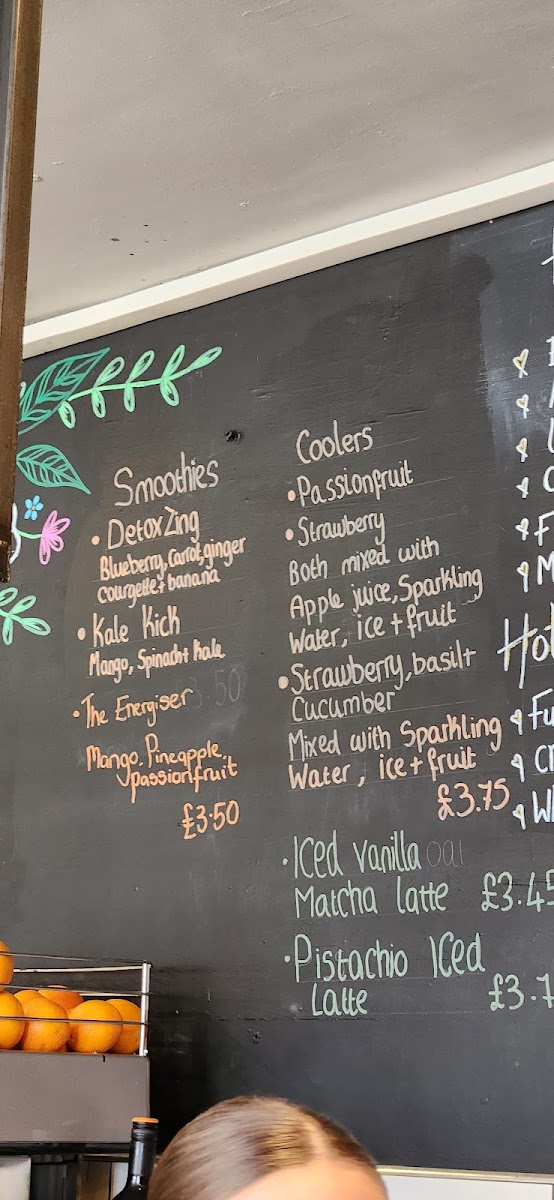 Smoothies
• Detox Zing
Blueberry, Carrot, ginger
courgette + banana
• Kale Kick
Mango, Spinach + Kale
• The Energiser
Mango, Pineapple,
passionfruit
£3.50
Coolers
• Passionfruit
• Strawberry
Both mixed with
Apple juice, Sparkling
Water, ice + fruit
• Strawberry, basil +
Cucumber
Mixed with Sparkling
Water, ice + fruit
£3.75
• Iced vanilla
Matcha latte £3.45
• Pistachio Iced
Latte £3.7